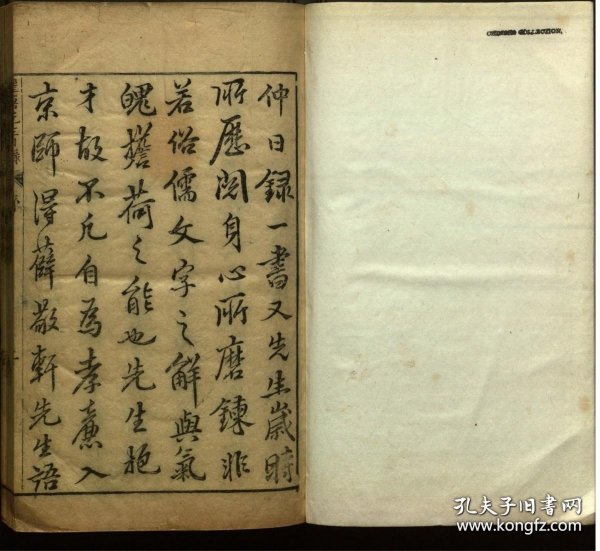 仲日録一書又先生歲時
所歷閱身心所磨鍊非
若俗儒文字之解與氣
魄擔荷之能也先生抱
才故不凡自為孝廉入
京師得薛敬軒先生語
孔夫子旧书网
www.kongfz.com